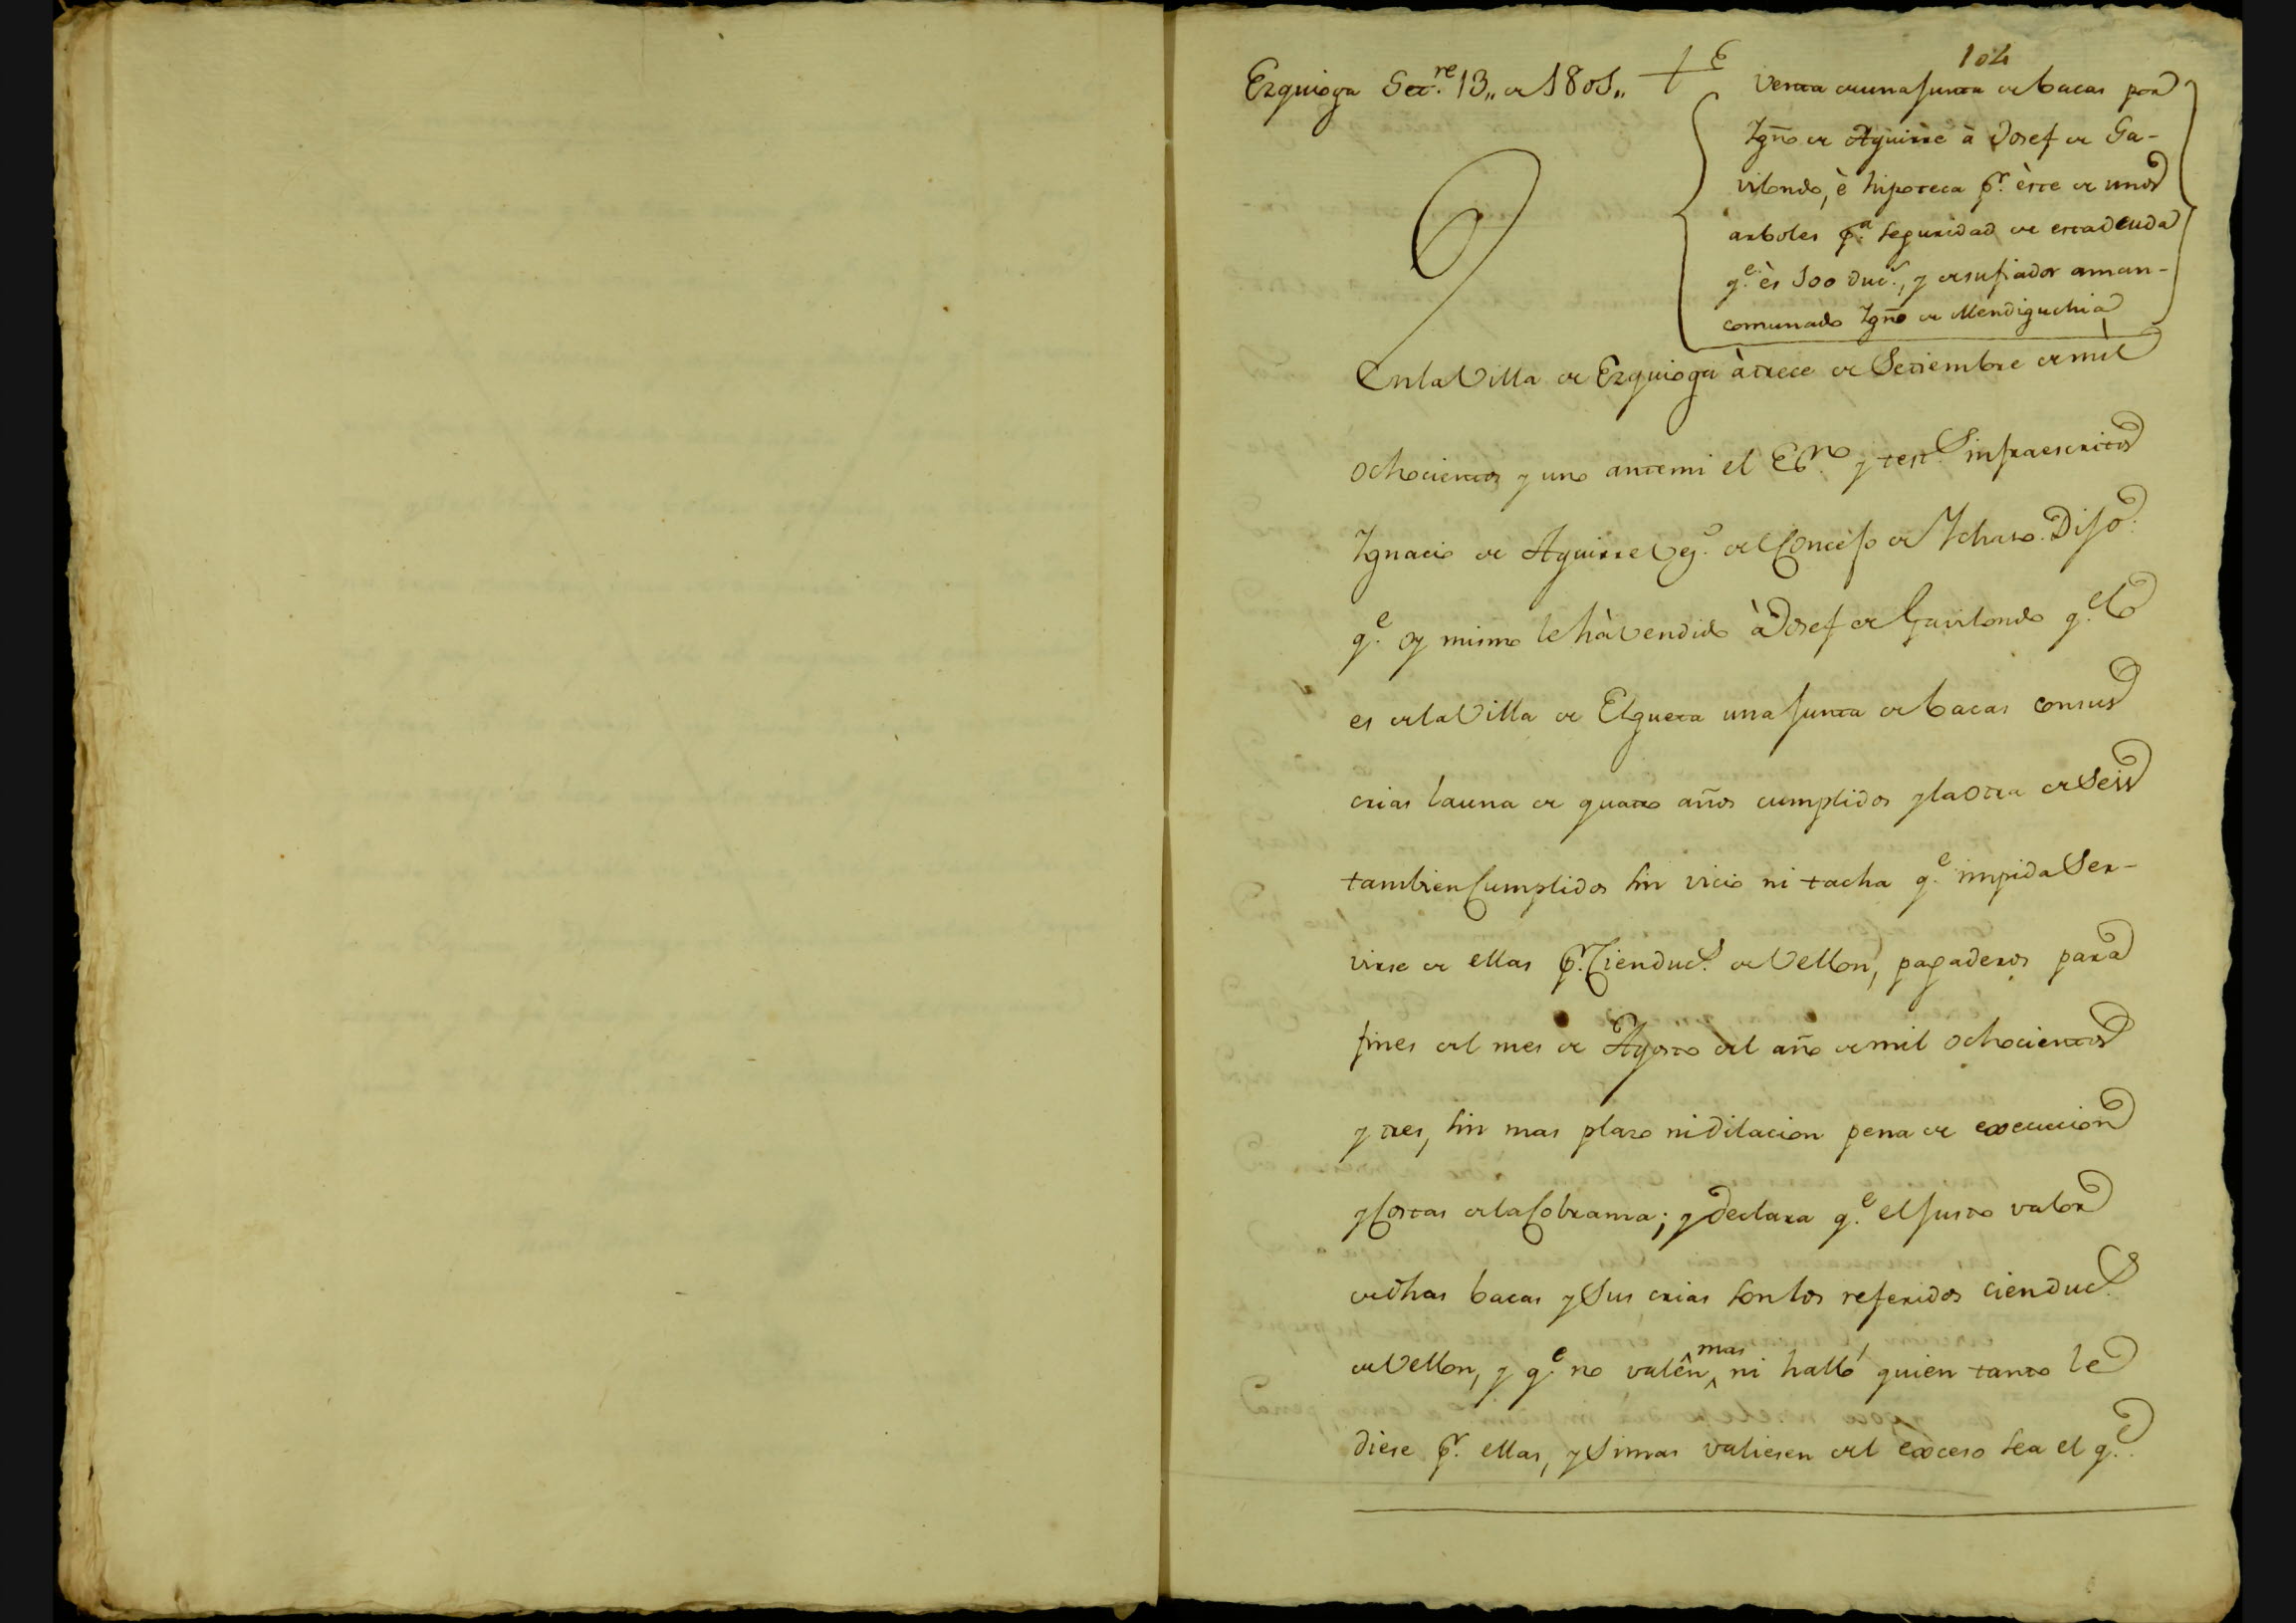 104
Ezquioga Set.re 13,, de 1801,,
Venta de una Junta de bacas por
Ygno de Aguirre à Josef de Ga-
vilondo, è hipoteca pr. èste de unos
arboles pa. seguridad de esta deuda
qe. ès 100 ducs., y de su fiador aman-
comunado Ygno de Mendiguchia
En la Villa de Ezquioga à trece de Setiembre de mil
ochocientos y uno ante mi el Esno. y test.s infraescritos
Ignacio de Aguirre Vez.o del Concejo de Ichaso. Dijo:
qe. oy mismo le hà vendido à Josef de Gavilondo qe. lo
es de la Villa de Elgueta una Junta de bacas con sus
crias la una de quatro años cumplidos y la otra de Seis
tambien Cumplidos sin vicio ni tacha qe. impida Ser-
virse de ellas pr. Cien ducs. de Vellon, pagaderos para
fines del mes de Agosto del año de mil ochocientos
y tres, sin mas plazo ni Dilacion pena de execucion
y Costas de la Cobranza; y declara qe. el Justo valor
de dhas bacas y Sus crias son los referidos cien ducs.
de Vellon, y qe. no valen mas ni halló quien tanto le
diese pr. ellas, y Si mas valiesen del exceso sea el qe.